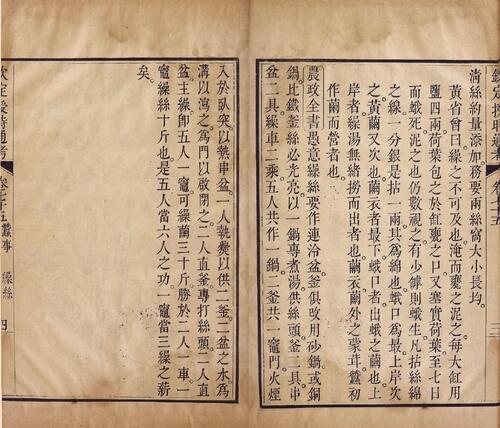 欽定授時通考 卷七十五
清絲約量添加務要兩絲窩大小長均
黃省曾曰繰之不可及也淹而甕之泥之每大缸用
鹽四兩荷葉包之於缸甕之口又塞實荷葉至七日
而蛾死泥之也仍數視之有少罅則蛾生凡拈絲綿
之線一分銀是拈一兩其為綿也蛾口為最上岸次
之黃繭又次也繭衣者最下蛾口者出蛾之繭也上
岸者繰湯無緒撈而出者也繭衣繭外之蒙茸蠶初
作繭而營者也
農政全書愚意繰絲要作連冷盆釜俱改用砂鍋或銅
鍋比鐵釜絲必光亮以一鍋專煮湯供絲頭釜二具串
盆二具繰車二乘五人共作一鍋二釜共一竈門火煙
入於臥突以熱串盆一人執爨以供二釜二盆之水為
溝以瀉之為門以啟閉之二人直釜專打絲頭二人直
盆主繰即五人一竈可繰繭三十斤勝於二人一車一
竈繰絲十斤也是五人當六人之功一竈當三繰之薪
矣
欽定授時通考 卷七十五 蠶事 繰絲 四